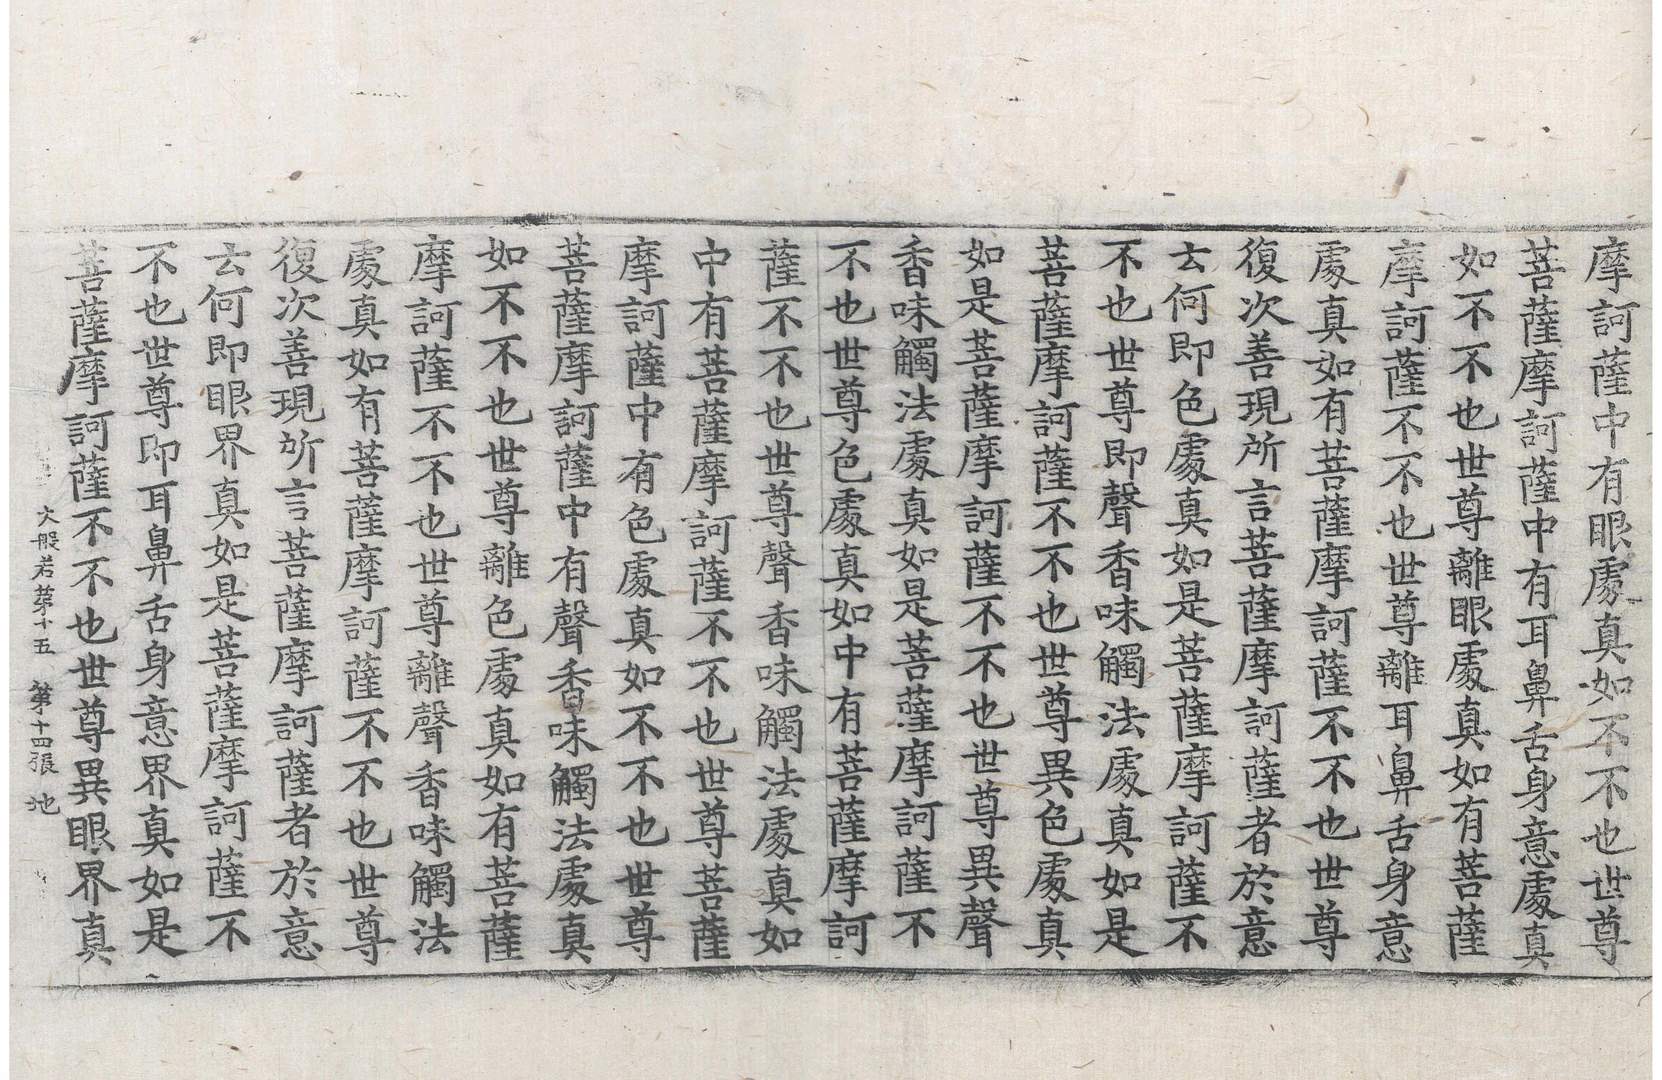 摩訶薩中有眼處真如不不也世尊
菩薩摩訶薩中有耳鼻舌身意處真
如不不也世尊離眼處真如有菩薩
摩訶薩不不也世尊離耳鼻舌身意
處真如有菩薩摩訶薩不不也世尊
復次善現所言菩薩摩訶薩者於意
云何即色處真如是菩薩摩訶薩不
不也世尊即聲香味觸法處真如是
菩薩摩訶薩不不也世尊異色處真
如是菩薩摩訶薩不不也世尊異聲
香味觸法處真如是菩薩摩訶薩不
不也世尊色處真如中有菩薩摩訶
薩不不也世尊聲香味觸法處真如
中有菩薩摩訶薩不不也世尊菩薩
摩訶薩中有色處真如不不也世尊
菩薩摩訶薩中有聲香味觸法處真
如不不也世尊離色處真如有菩薩
摩訶薩不不也世尊離聲香味觸法
處真如有菩薩摩訶薩不不也世尊
復次善現所言菩薩摩訶薩者於意
云何即眼界真如是菩薩摩訶薩不
不也世尊即耳鼻舌身意界真如是
菩薩摩訶薩不不也世尊異眼界真
大般若第十五 第十四張 池